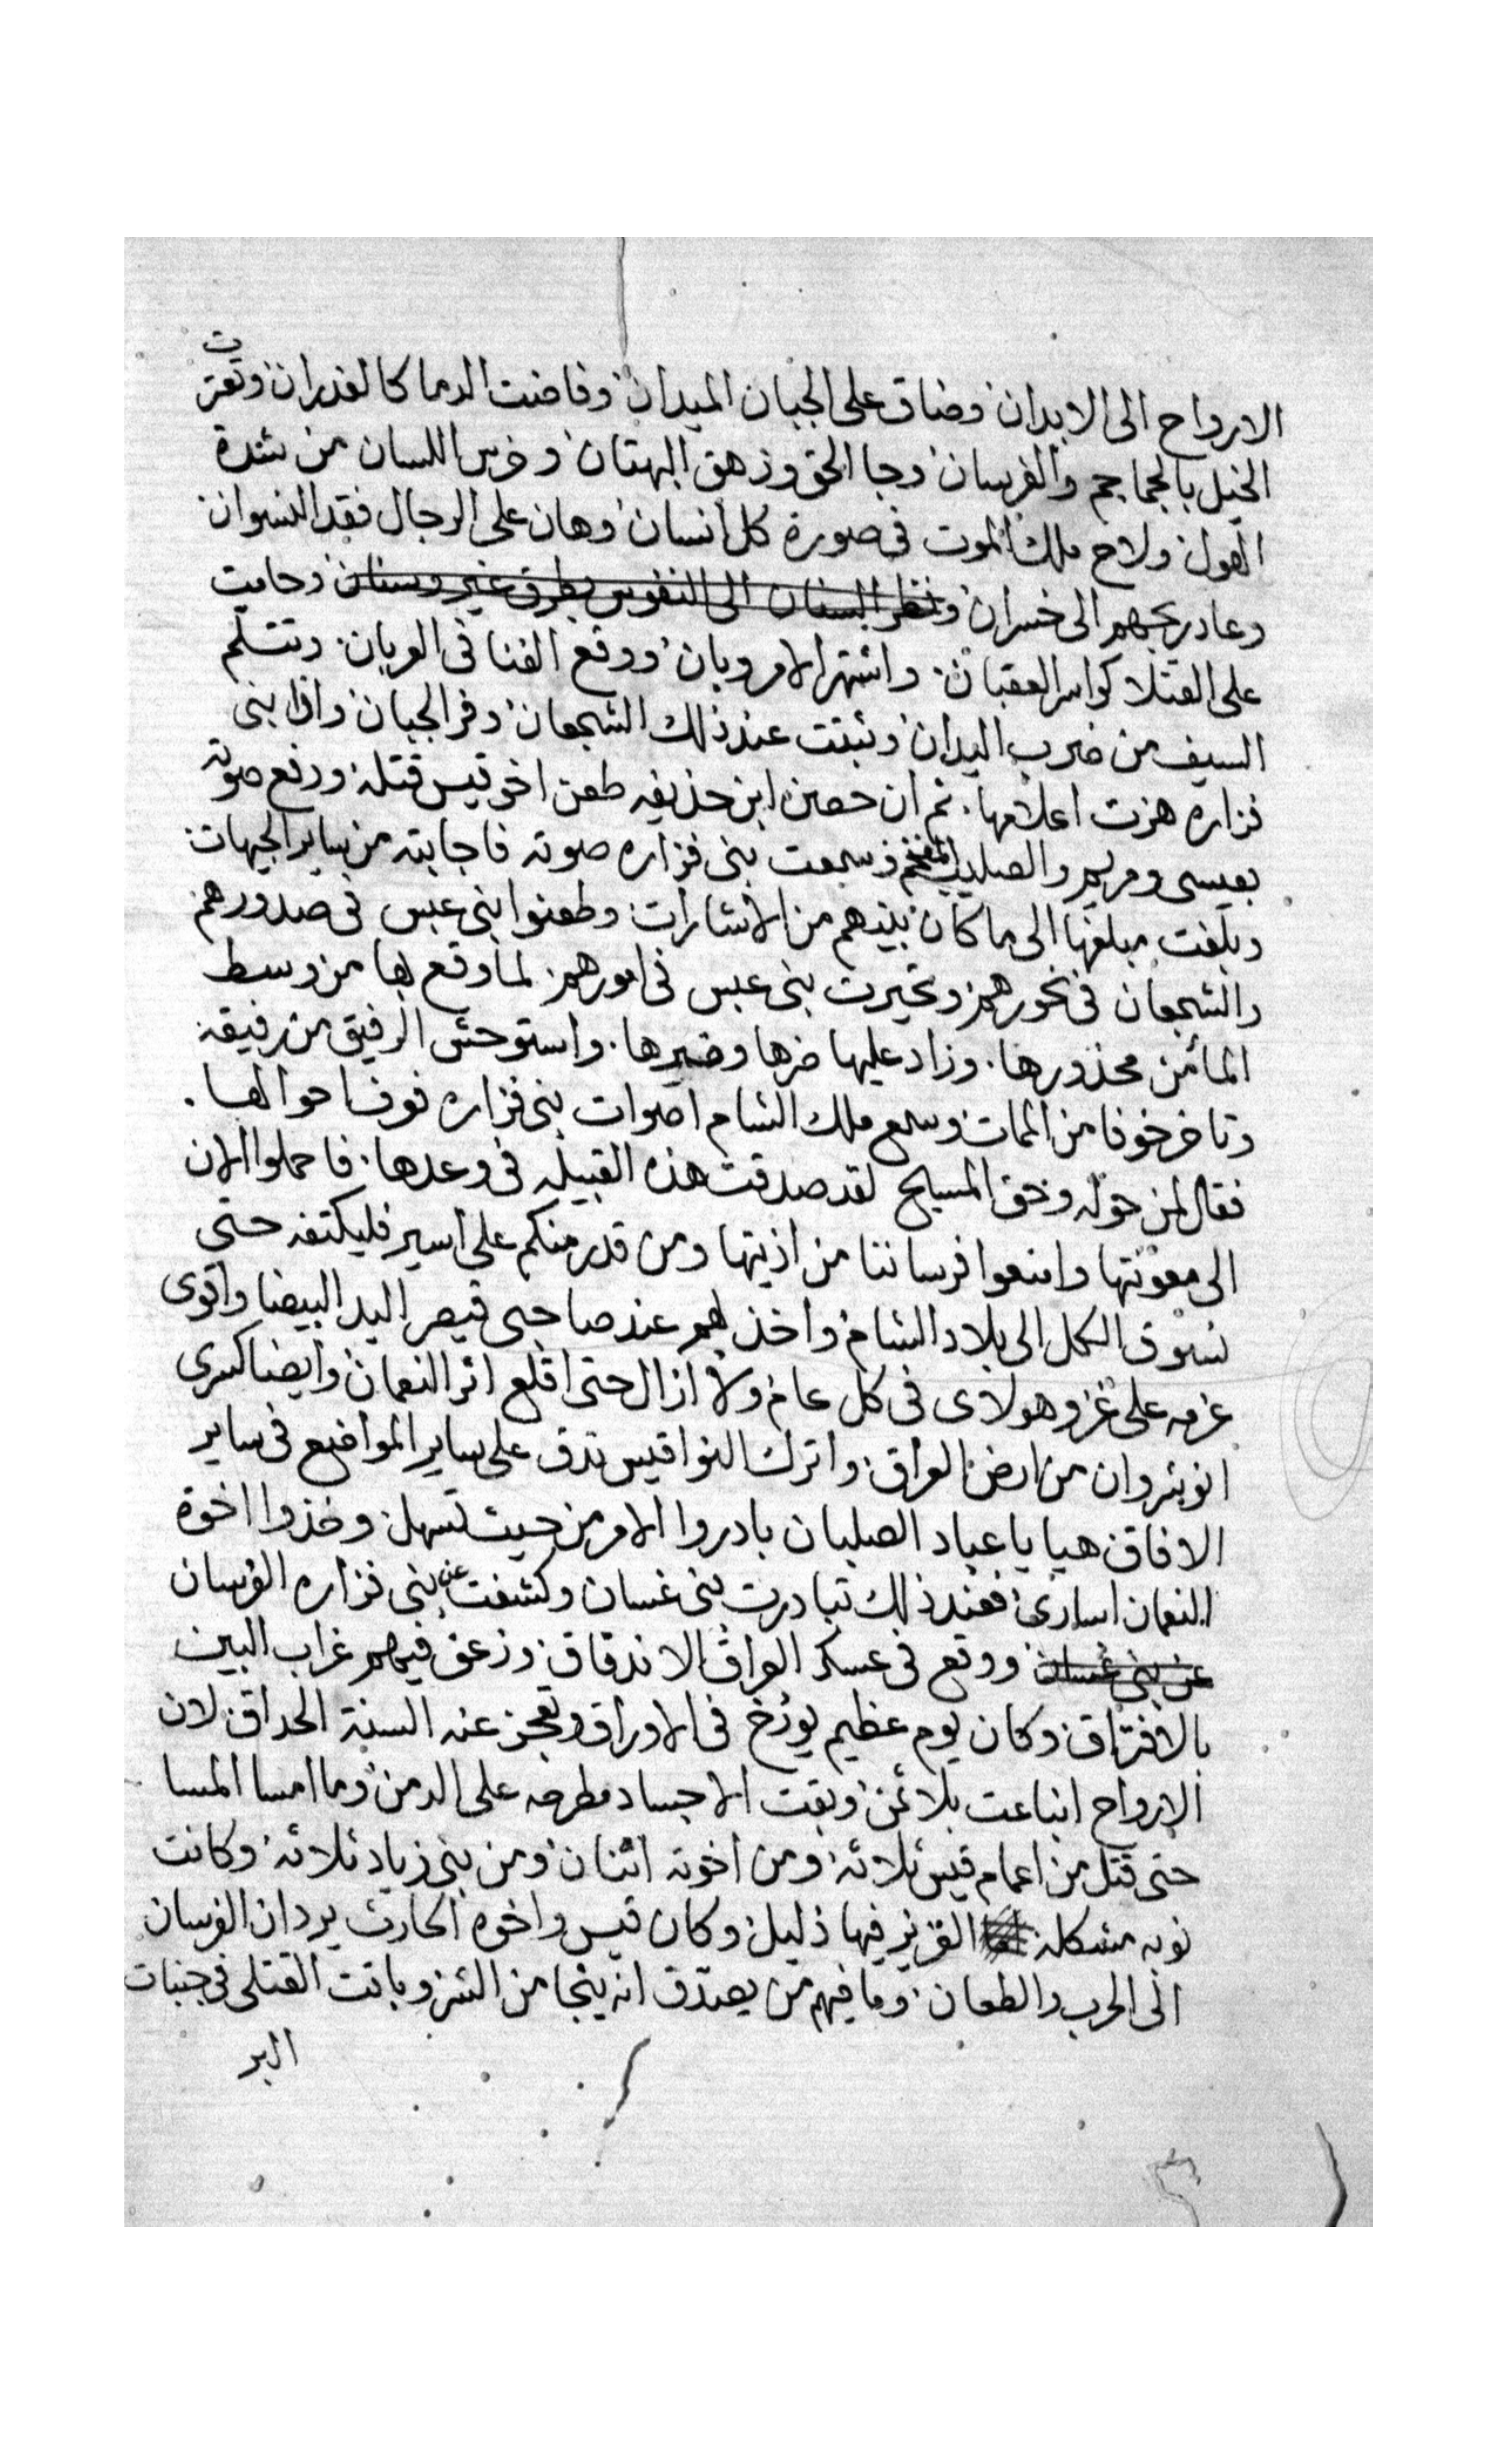 الارواح الى الابدان وضاق على الجبان الميدان وفاضت الدما كالغدران وتعترت
الخيل بالجماجم والفرسان وجا الحق وزهق البهتان وخرس اللسان من شدة
الهول ولاح ملك الموت فى صورة كل انسان وهان على الرجال فقد النسوان
وعاد ربحهم الى خسران ونظر السنان الى النفوس بطرف غير وسنان وحامت
على القتلا كواسر العقبان واشتهر الامر وبان ووقع الفنا فى العربان وتثلم
السيف من ضرب اليدان وثبتت عند ذلك الشجعان وفر الجبان واذا بنى
فزاره هزت اعلامها ثم ان حصن ابن حذيفه طعن اخو قيس قتله ورفع صوته
بعيسى ومريم والصليب المفخم فسمعت بنى فزاره صوته فاجابته من ساير الجهات
وبلغت مبلغها الى ما كان بينهم من الاشارات وطعنوا بنى عبس فى صدورهم
والشجعان فى نحورهم وتحيرت بنى عبس فى امورهم لما وقع بها من وسط
المأمن محذورها وزاد عليها ضرها وضيرها واستوحش الرفيق من رفيقه
وتاخر خوفا من الممات وسمع ملك الشام اصوات بنى فزاره فوفا حوالها
فقال لمن حوله وحق المسيح لقد صدقت هذه القبيله فى وعدها فاحملوا الان
الى معونتها وامنعوا فرساننا من اذيتها ومن قدر منكم على اسير فليكتفه حتى
نسوق الكل الى بلاد الشام واخذ بهم عند صاحبى قيصر اليد البيضا واقوى
عزمه على غزو هولاى فى كل عام ولا ازال حتى اقلع اثر النعمان وايضا كسرى
انوشروان من ارض العراق واترك النواقيس تدق على ساير المواضيع فى ساير
الافاق هيا يا عباد الصلبان بادروا الامر من حيث تسهل وخذوا اخوة
النعمان اسارى فعند ذلك تبادرت بنى غسان وكشفت عن بنى فزاره الفرسان
عن بنى غسان ووقع فى عسكر العراق الاندقاق وزعق فيهم غراب البين
بالافتراق وكان يوم عظيم يورخ فى الاوراق وتعجز عنه السنة الحداق لان
الارواح انباعت بلا ثمن وبقت الاجساد مطرحه على الدمن وما امسا المسا
حتى قتل من اعمام قيس ثلاثه ومن اخوته اثنان ومن بنى زياد ثلاثه وكانت
نوبه مشكله العزيز فيها ذليل وكان قيس واخوه الحارث يردان الفرسان
الى الحرب والطعان وما فيهم من يصدق انه ينجا من الشر وباتت القتلى فى جنبات
البر